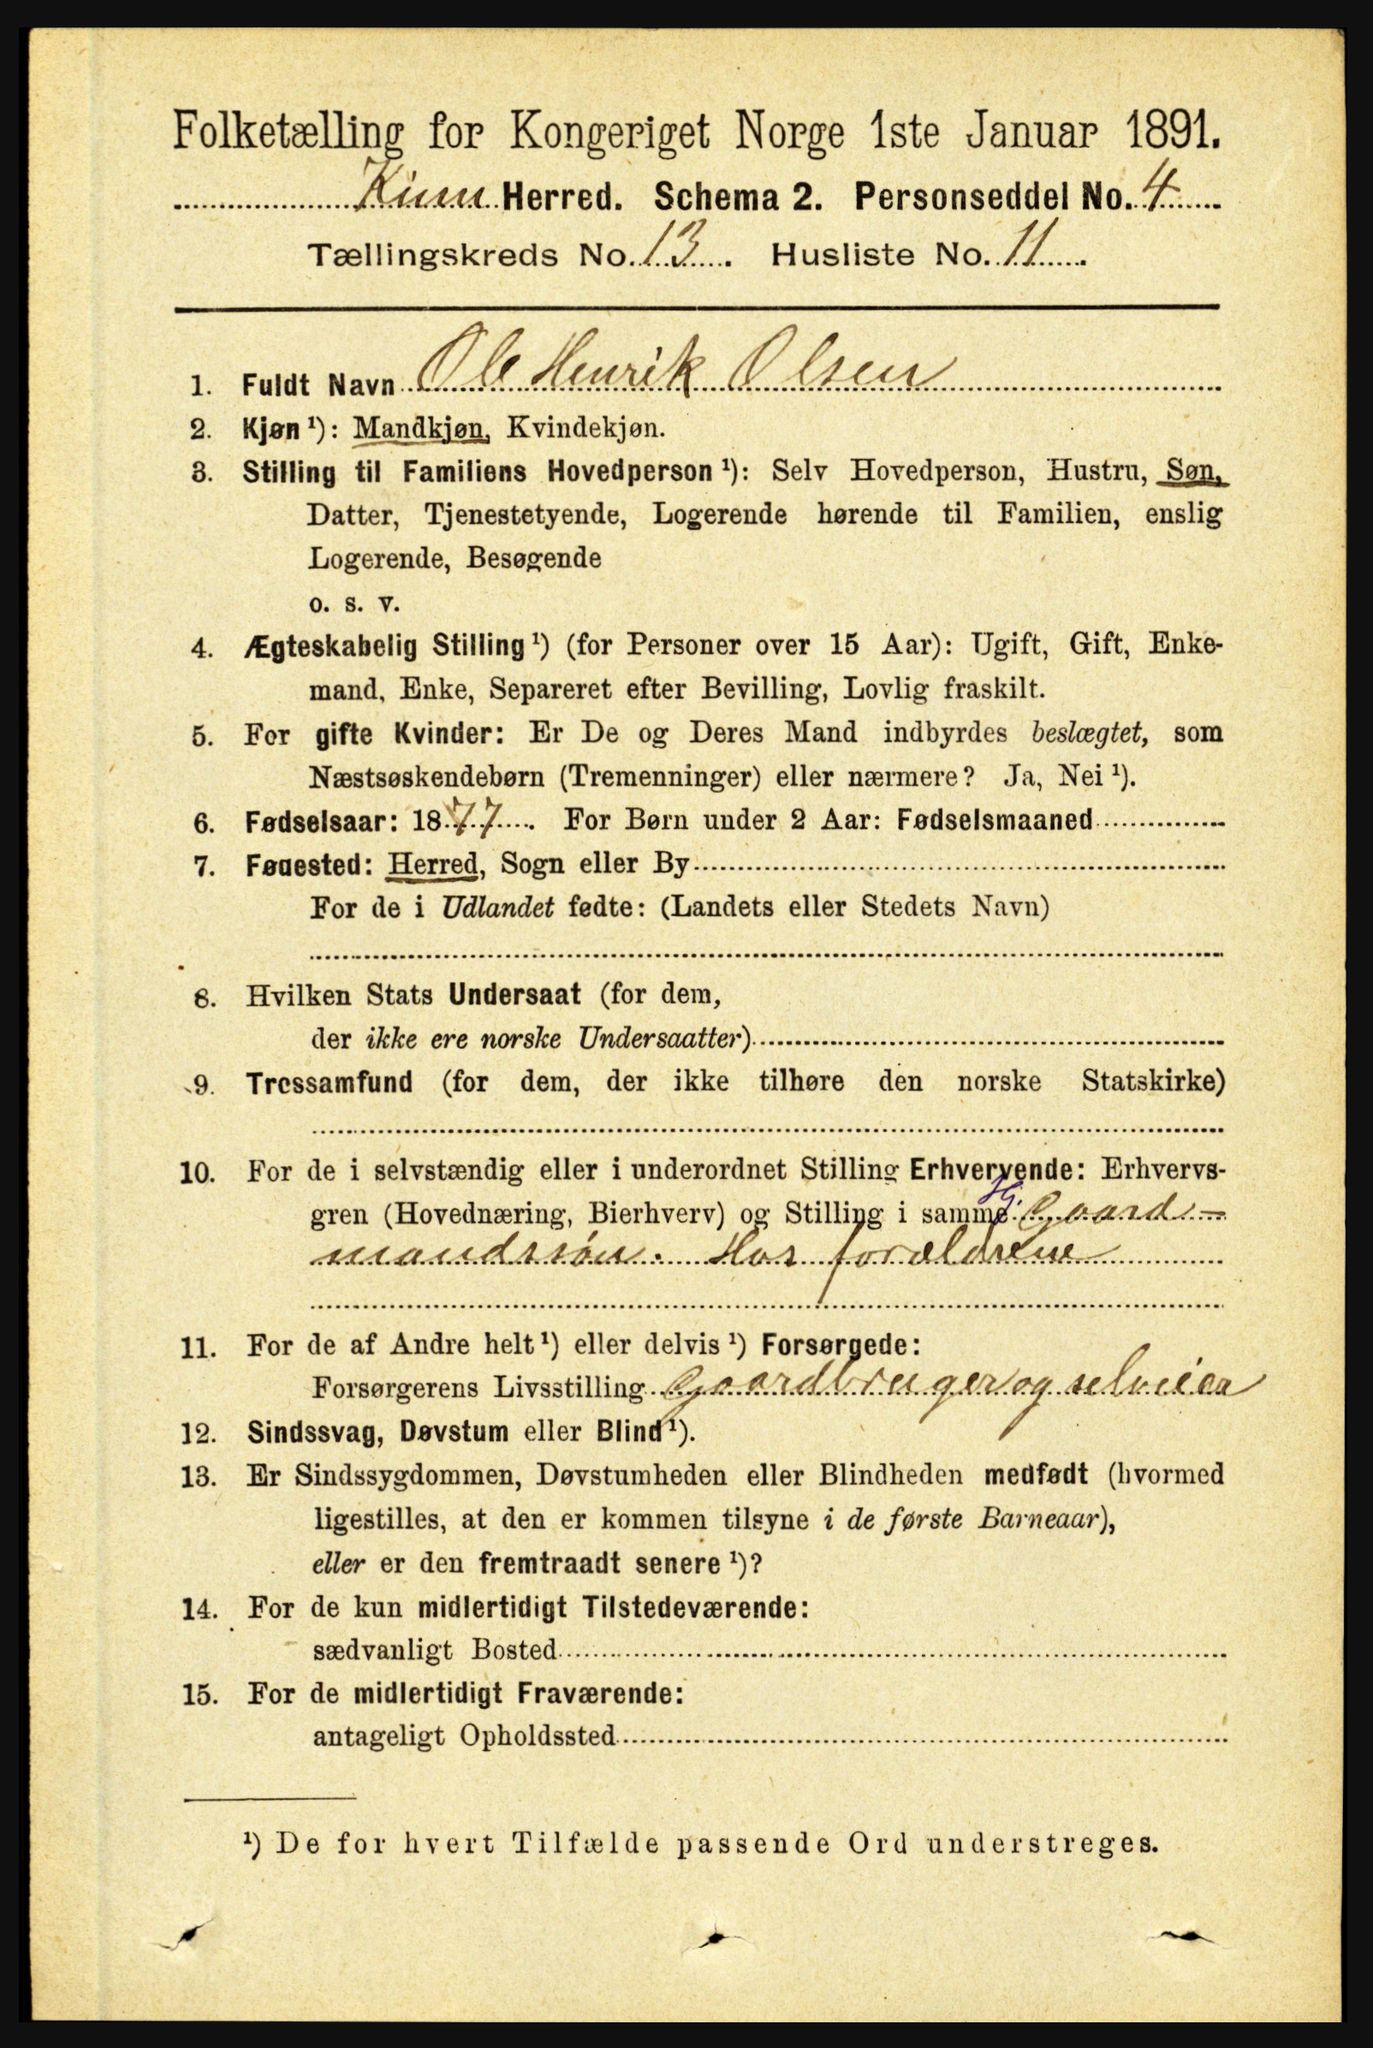 Folketælling for Kongeriget Norge 1ste Januar 1891.
Kinn Herred. Schema 2. Personseddel No. 4
Tællingskreds No. 13. Husliste No. 11
1. Fuldt Navn Ole Henrik Olsen
2. Kjøn ¹): Mandkjøn, Kvindekjøn.
3. Stilling til Familiens Hovedperson ¹): Selv Hovedperson, Hustru, Søn,
Datter, Tjenestetyende, Logerende hørende til Familien, enslig
Logerende, Besøgende
o. s. v.
4. Ægteskabelig Stilling ¹) (for Personer over 15 Aar): Ugift, Gift, Enke-
mand, Enke, Separeret efter Bevilling, Lovlig fraskilt.
5. For gifte Kvinder: Er De og Deres Mand indbyrdes beslægtet, som
Næstsøskendebørn (Tremenninger) eller nærmere? Ja, Nei ¹).
6. Fødselsaar: 1877. For Børn under 2 Aar: Fødselsmaaned
7. Føaested: Herred, Sogn eller By
For de i Udlandet fødte: (Landets eller Stedets Navn)
8. Hvilken Stats Undersaat (for dem,
der ikke ere norske Undersaatter)
9. Trossamfund (for dem, der ikke tilhøre den norske Statskirke)
10. For de i selvstændig eller i underordnet Stilling Erhvervende: Erhvervs-
gren (Hovednæring, Bierhverv) og Stilling i samme Gaard-
mandssøn. Hos forældrene
11. For de af Andre helt ¹) eller delvis ¹) Forsørgede:
Forsørgerens Livsstilling Gaardbruger og selveier
12. Sindssvag, Døvstum eller Blind ¹).
13. Er Sindssygdommen, Døvstumheden eller Blindheden medfødt (hvormed
ligestilles, at den er kommen tilsyne i de første Barneaar),
eller er den fremtraadt senere ¹)?
14. For de kun midlertidigt Tilstedeværende:
sædvanligt Bosted
15. For de midlertidigt Fraværende:
antageligt Opholdssted
¹) De for hvert Tilfælde passende Ord understreges.